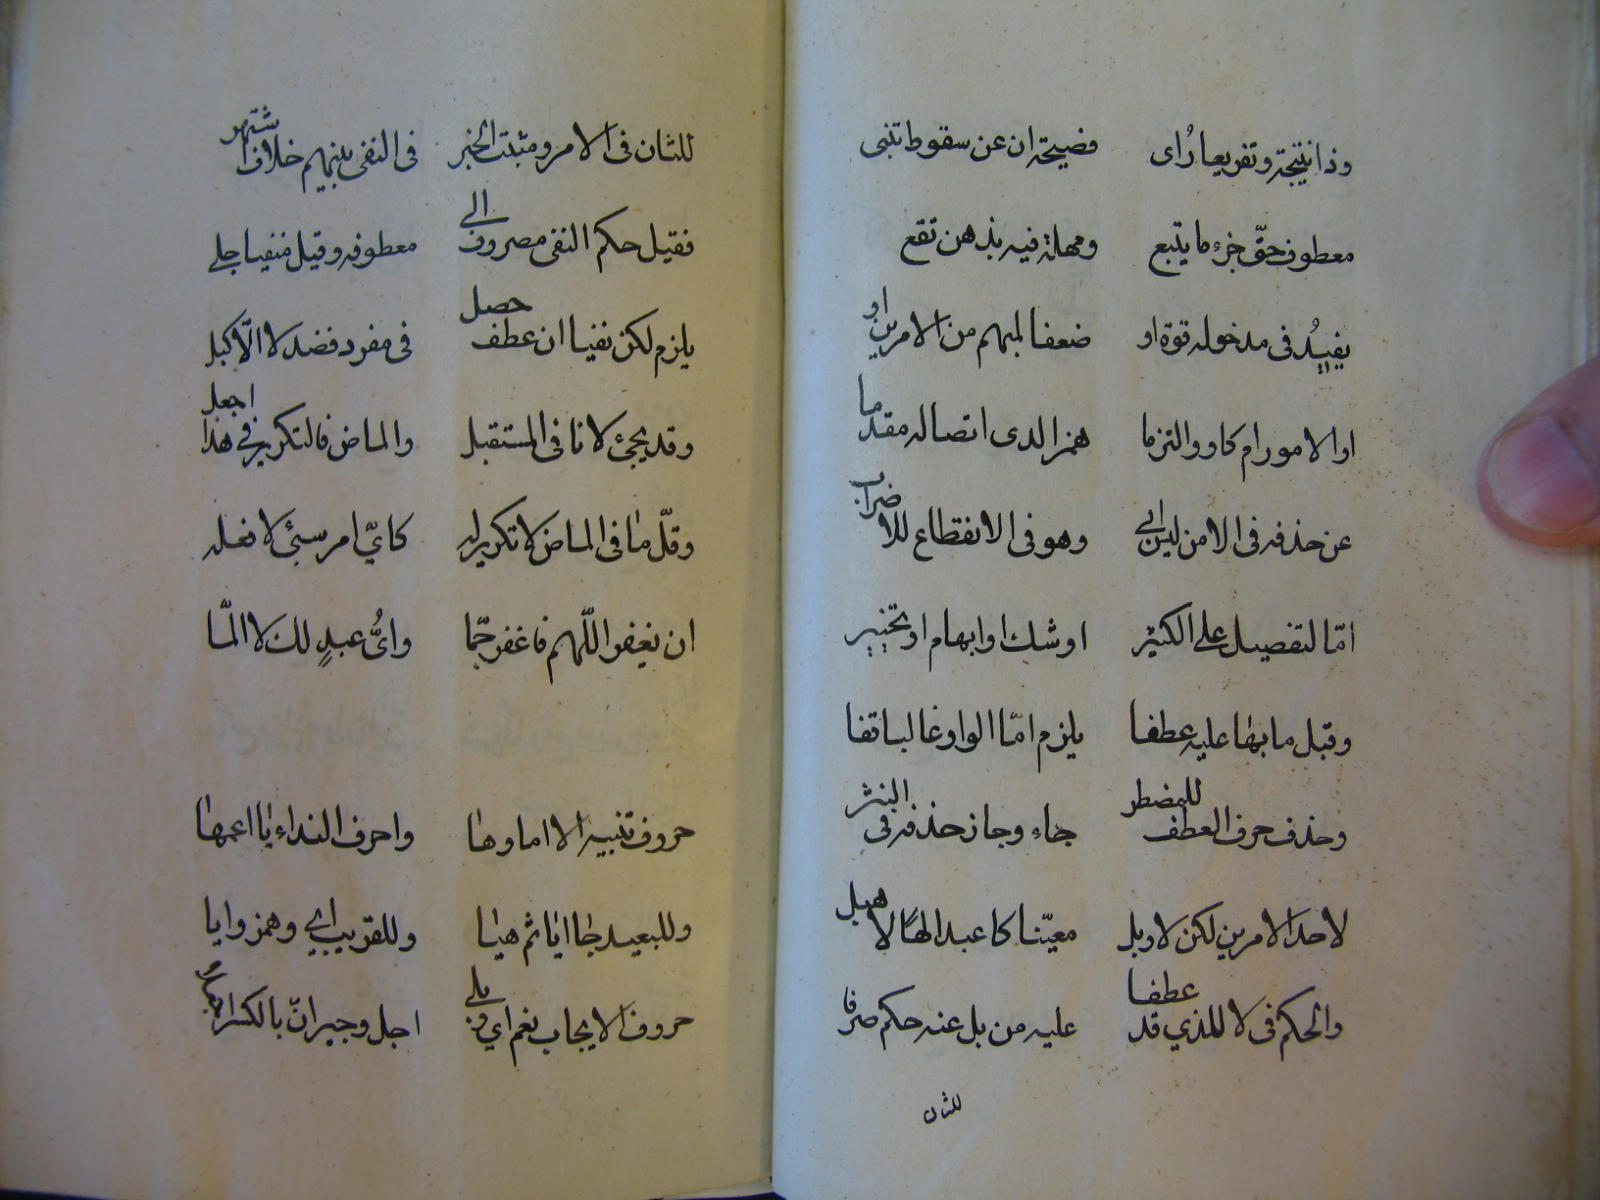 وذا نتيجة وتفريعا رُاى فضيحة ان عن سقوط تنبى
معطوف حقّ جزء ما يتبع ومهلة فيه بذهن تقع
يفيدُ فى مدخوله قوة او ضعفا لمبهم من الامرين او
او الامور ام كاو والتزما همز الدى اتصاله مقدما
عن حذفه فى الامن لبس ابى وهو فى الانقطاع للاضراب
امّا لتفصيل على الكثير او شك او ابهام او تخيير
وقبل ما بها عليه عطفا يلزم امّا الواو غالبا قفا
وحذف حرف العطف للمضطر جاء وجاز حذفه فى النثر
لاحد الامرين لكن لا وبل معيّنا كاعبد الهًا لا هبل
والحكم فى لا للذي قد عطفا عليه من بل عنه حكم صرفا
للثان
للثان فى الامر ومثبت الخبر فى النفى بينهم خلاف اشتهر
فقيل حكم النفى مصروف الى معطوفه وقيل منفيا جلى
يلزم لكن نفيا ان عطف حصل فى مفرد فضد لا الّا كبل
وقد يجئ لا نافى المستقبل والماض فالتكرير فى هذا اجعل
وقلّ ما فى الماض لا تكرير له كايّ امر سيئ لا فعله
ان تغفر اللّهم فاغفر جمّا وايُّ عبدٍ لك لا المّا
حروف تنبيه الا اما وها واحرف النداء يا اعمها
وللبعيد جا ايا ثم هيا وللقريب اي وهمز وايا
حروف الايجاب نعم اي وبلى اجل وجير انّ بالكسر